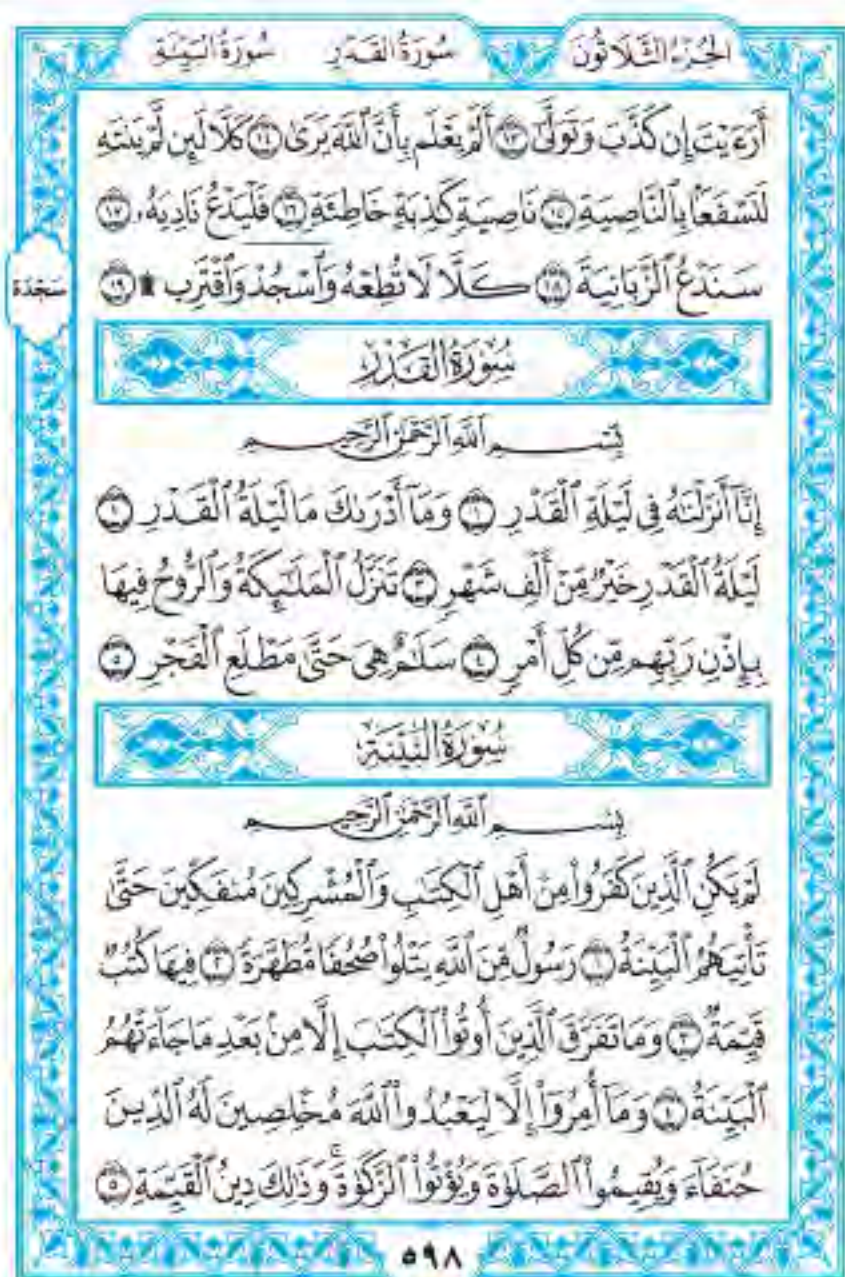 الجزء الثلاثون سورة القدر سورة البينة
أَرَءَيْتَ إِن كَذَّبَ وَتَوَلَّىٰٓ ١٣ أَلَمْ يَعْلَم بِأَنَّ ٱللَّهَ يَرَىٰ ١٤ كَلَّا لَئِن لَّمْ يَنتَهِ
لَنَسْفَعًۢا بِٱلنَّاصِيَةِ ١٥ نَاصِيَةٍ كَٰذِبَةٍ خَاطِئَةٍ ١٦ فَلْيَدْعُ نَادِيَهُۥ ١٧
سَنَدْعُ ٱلزَّبَانِيَةَ ١٨ كَلَّا لَا تُطِعْهُ وَٱسْجُدْ وَٱقْتَرِب ۩ ١٩
سجدة
سُورَةُ القَدْرِ
بِسْمِ ٱللَّهِ ٱلرَّحْمَٰنِ ٱلرَّحِيمِ
إِنَّآ أَنزَلْنَٰهُ فِى لَيْلَةِ ٱلْقَدْرِ ١ وَمَآ أَدْرَىٰكَ مَا لَيْلَةُ ٱلْقَدْرِ ٢
لَيْلَةُ ٱلْقَدْرِ خَيْرٌ مِّنْ أَلْفِ شَهْرٍ ٣ تَنَزَّلُ ٱلْمَلَٰٓئِكَةُ وَٱلرُّوحُ فِيهَا
بِإِذْنِ رَبِّهِم مِّن كُلِّ أَمْرٍ ٤ سَلَٰمٌ هِىَ حَتَّىٰ مَطْلَعِ ٱلْفَجْرِ ٥
سُورَةُ البَيِّنَةِ
بِسْمِ ٱللَّهِ ٱلرَّحْمَٰنِ ٱلرَّحِيمِ
لَمْ يَكُنِ ٱلَّذِينَ كَفَرُوا۟ مِنْ أَهْلِ ٱلْكِتَٰبِ وَٱلْمُشْرِكِينَ مُنفَكِّينَ حَتَّىٰ
تَأْتِيَهُمُ ٱلْبَيِّنَةُ ١ رَسُولٌ مِّنَ ٱللَّهِ يَتْلُوا۟ صُحُفًا مُّطَهَّرَةً ٢ فِيهَا كُتُبٌ
قَيِّمَةٌ ٣ وَمَا تَفَرَّقَ ٱلَّذِينَ أُوتُوا۟ ٱلْكِتَٰبَ إِلَّا مِنۢ بَعْدِ مَا جَآءَتْهُمُ
ٱلْبَيِّنَةُ ٤ وَمَآ أُمِرُوٓا۟ إِلَّا لِيَعْبُدُوا۟ ٱللَّهَ مُخْلِصِينَ لَهُ ٱلدِّينَ
حُنَفَآءَ وَيُقِيمُوا۟ ٱلصَّلَوٰةَ وَيُؤْتُوا۟ ٱلزَّكَوٰةَ ۚ وَذَٰلِكَ دِينُ ٱلْقَيِّمَةِ ٥
٥٩٨